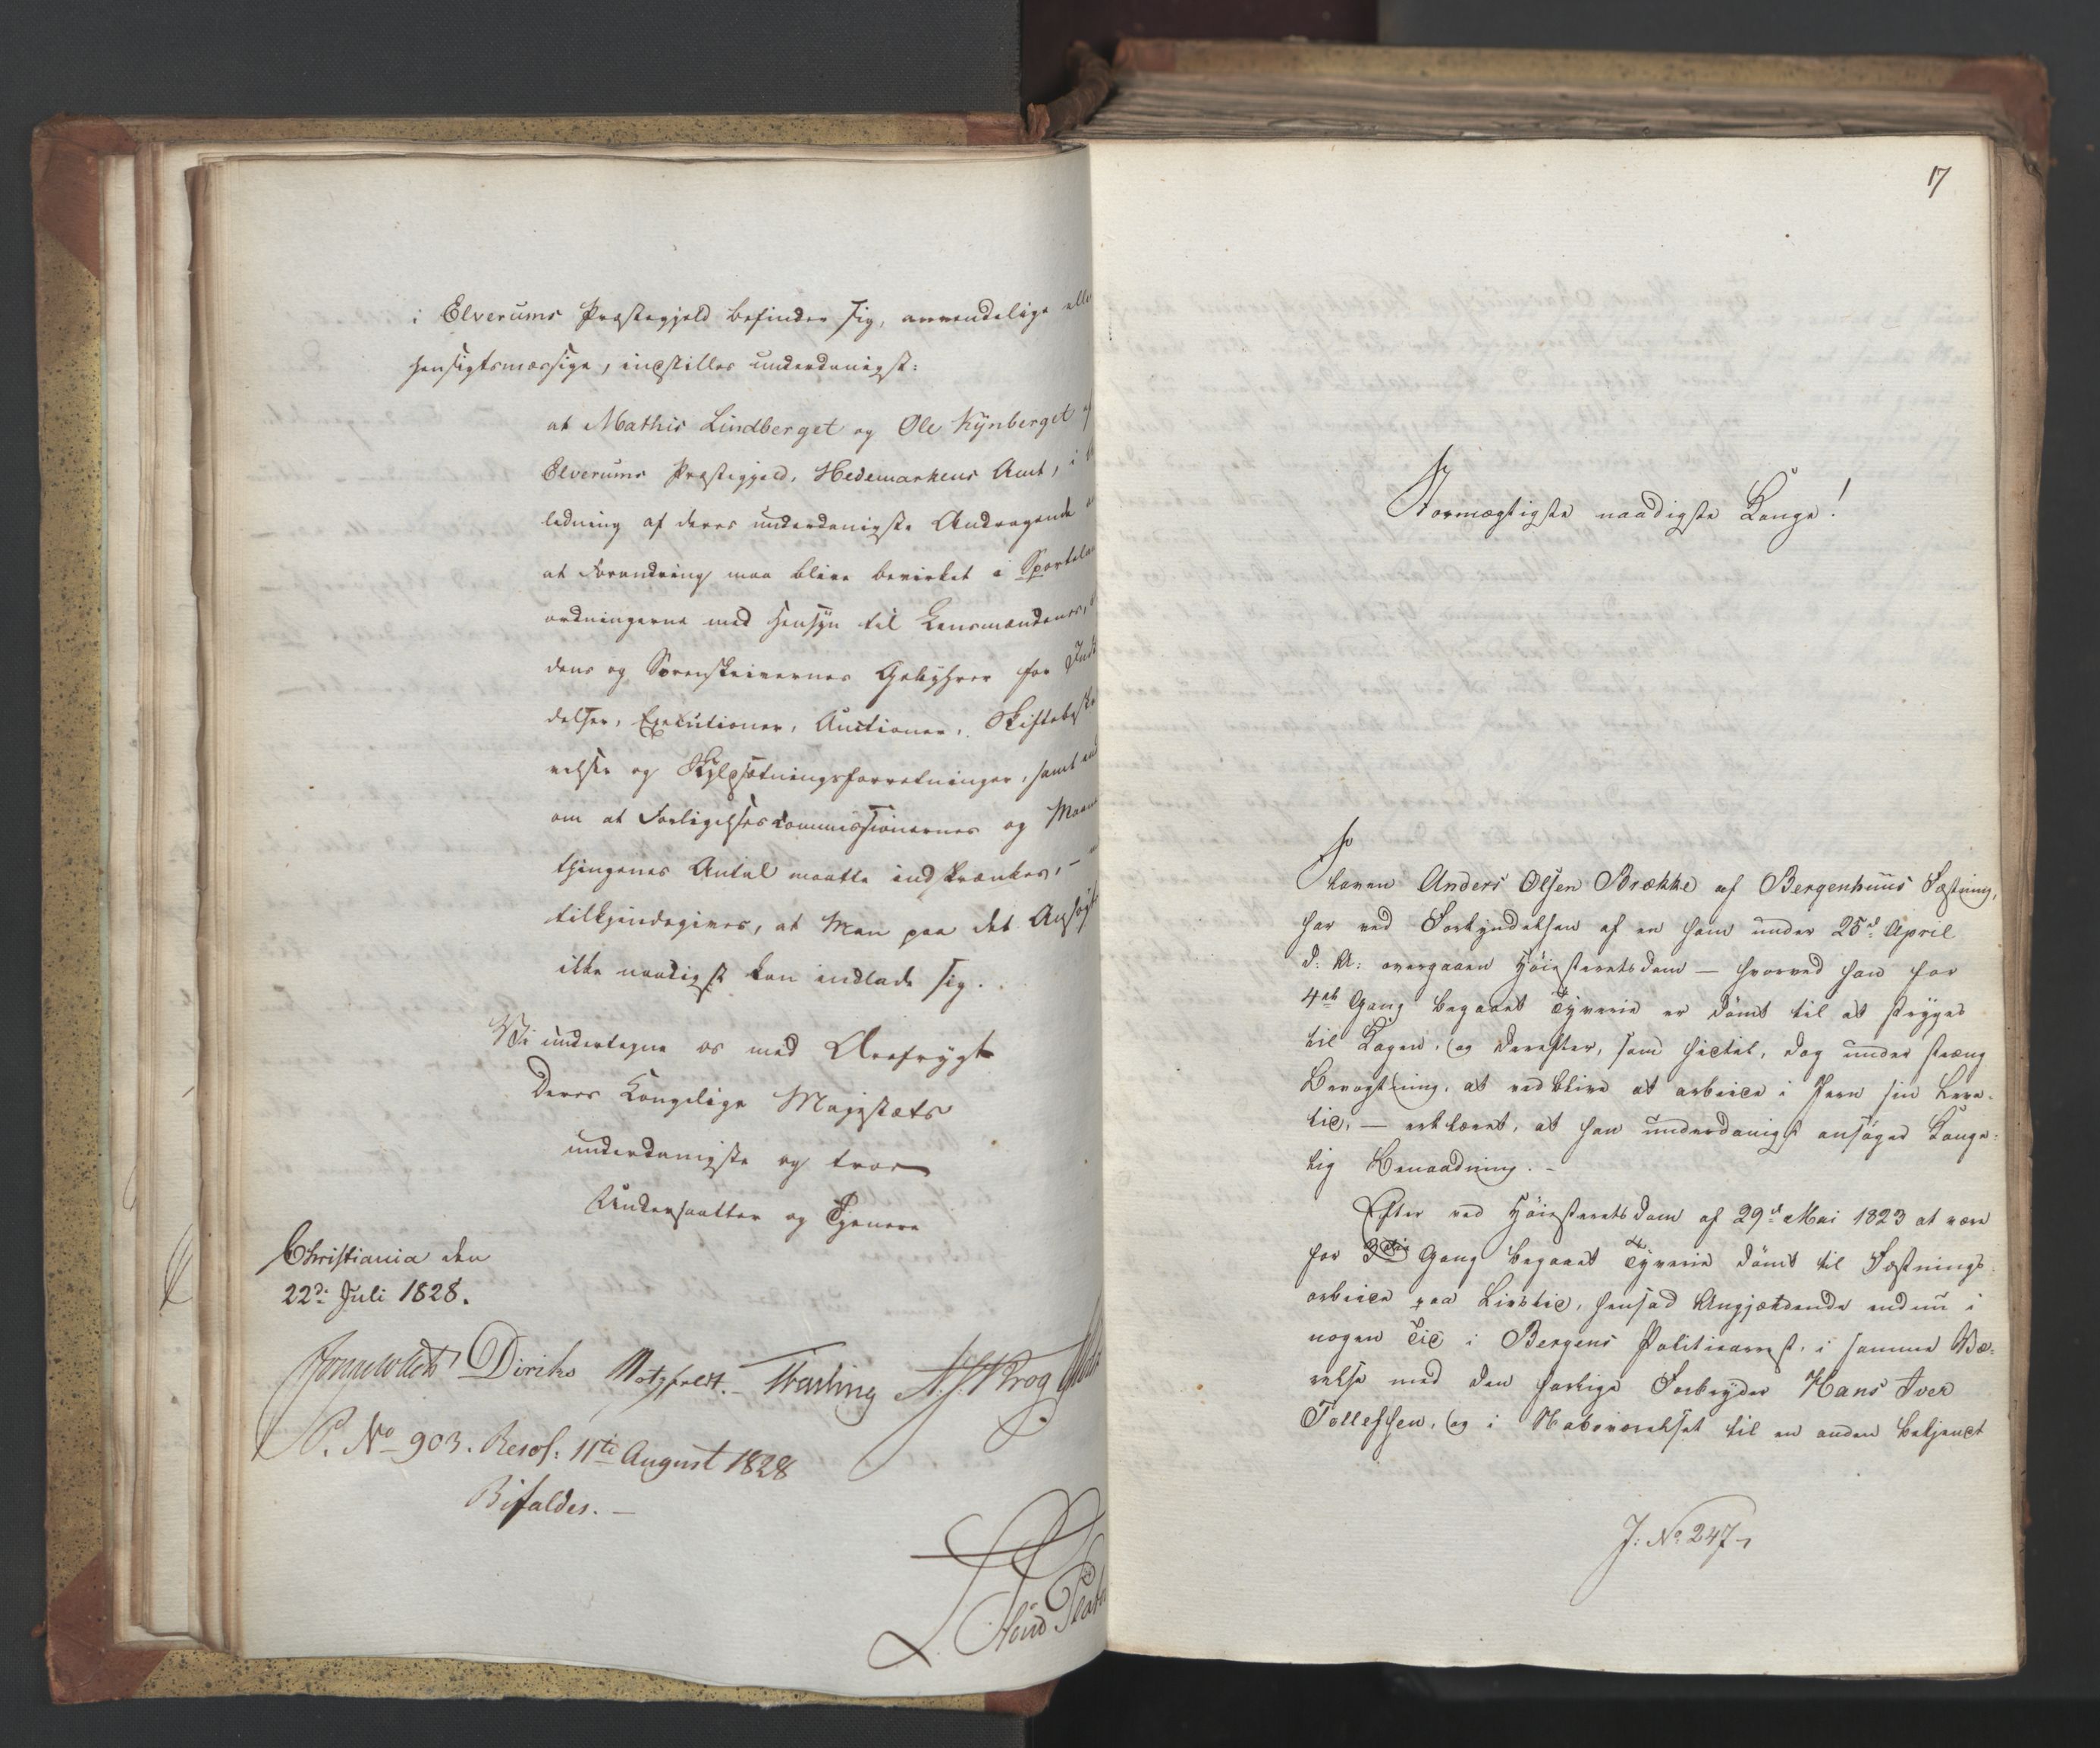 i Elverums Præstegjeld befinder sig, anvendelige elle
hensigtsmæssige, indstilles underdanigst:
at Mathis Lindberget og Ole Kynberget af
Elverums Præstegjeld, Hedemarkens Amt, i
ledning af deres underdanigste Andragende
at Forandring maa blive bevirket i Sportel
ordningerne med Hensyn til Lensmændenes,
dens og Sorenskrivernes Gebyhrer for
delser, Executioner, Auctioner, Skiftebeh
relser og Skyldsætningsforretninger, samt
om at Forligelsescommissionernes og Maane
thingenes Antal maatte indskrænkes, –
tilkjendegives, at Man paa det Ansøgte
ikke naadigst kan indlade sig.
Vi undertegne os med Ærefrygt
Deres Kongelige Majestæts
underdanigste og troe
Undersaatter og Tjenere
Christiania den
22d: Juli 1828.
Diriks Motzfeldt. – Krog
P. No 903. Resol: 11te August 1828
Bifaldes. –
17
Stormægtigste naadigste Konge!
Slaven Anders Olsen Brække af Bergenhuus Fæstning,
har ved Forkyndelsen af en ham under 25d April
d: A: overgaaen Høiesteretsdom – hvorved han for
4de Gang begaaet Tyverie er dömt til at stryges
til Kagen, og derefter, som hidtil, dog under stræng
Bevogtning, at vedblive at arbeide i Jern sin Livs-
tid, – erklæret, at han underdanigst ansøger Konge-
lig Benaadning. –
Efter ved Høiesteretsdom af 29d Mai 1823 at være
for 3die Gang begaaet Tyverie dömt til Fæstnings-
arbeide paa Livstid, hensad Angjældende endnu i
nogen Tid i Bergens Politiearrest, i samme Væ-
relse med den farlige Forbryder Hans Iver
Tollefsen, og i Naboværelset til en anden bekjendt
J: No 247